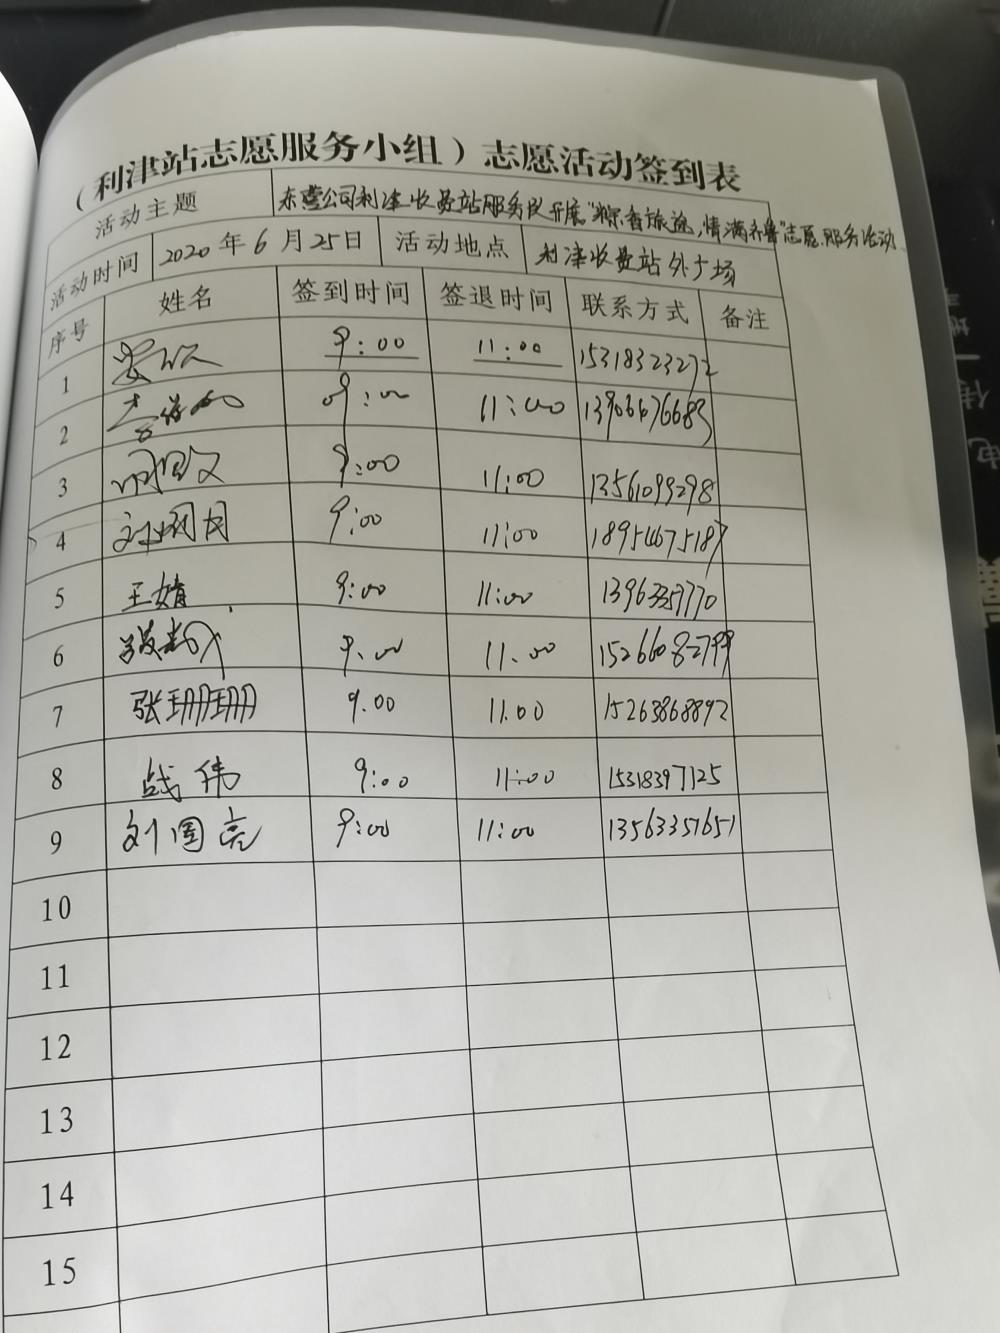 （利津站志愿服务小组）志愿活动签到表
活动主题 东营公司利津收费站服务队开展"粽香旅途,情满齐鲁"志愿服务活动
活动时间 2020年6月25日 活动地点 利津收费站外广场
序号 姓名 签到时间 签退时间 联系方式 备注
1 9:00 11:00 15318323272
2 9:00 11:00
3 9:00 11:00 13561099298
4 9:00 11:00 18954675187
5 王婧 9:00 11:00
6 9:00 11:00 15266082799
7 张珊珊 9:00 11:00 15263868892
8 战伟 9:00 11:00 15318397125
9 刘国亮 9:00 11:00 13563351651
10
11
12
13
14
15